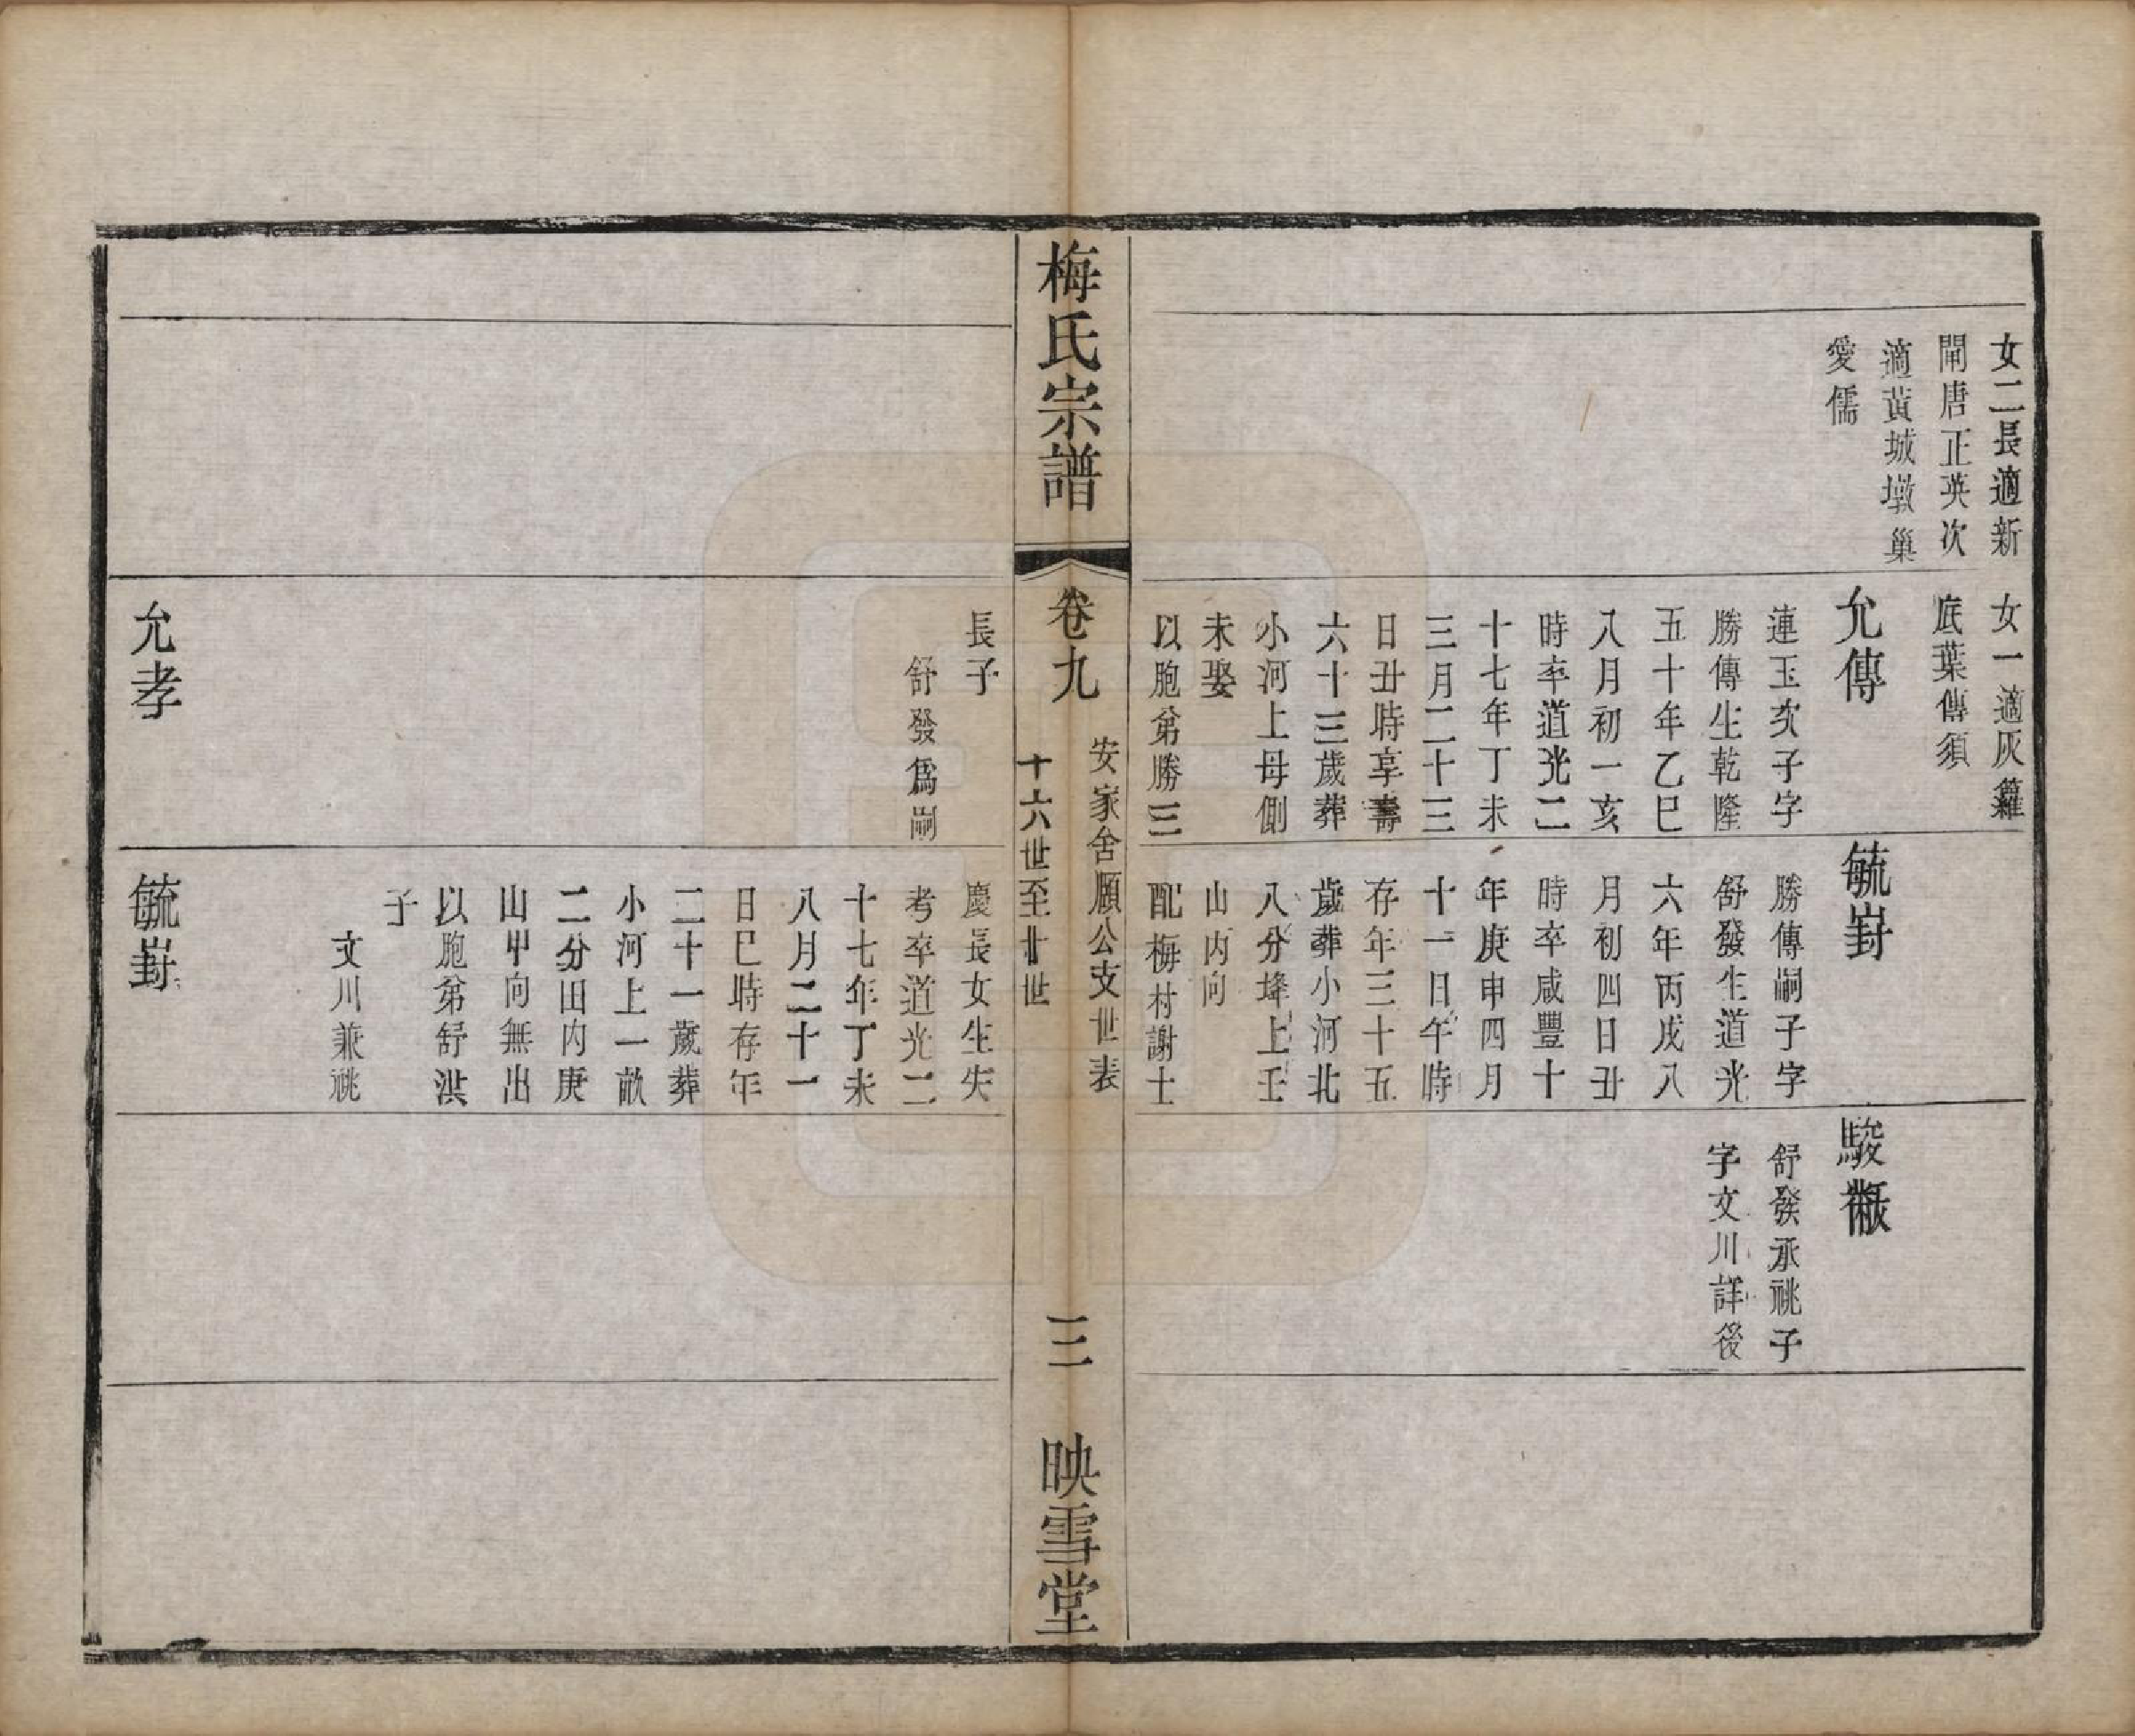 女二長適新
閘唐正英次
適黃城墩巢
愛儒
女一適灰籮
底葉傳須
允傳
連玉次子字
勝傳生乾隆
五十年乙巳
八月初一亥
時卒道光二
十七年丁未
三月二十三
日丑時享壽
六十三歲葬
小河上母側
未娶
以胞弟勝三
毓崶
勝傳嗣子字
舒發生道光
六年丙戌八
月初四日丑
時卒咸豐十
年庚申四月
十一日午時
存年三十五
歲葬小河北
八分埄上壬
山内向
配梅村謝士
駿黻
舒發承祧子
字文川詳後
梅氏宗譜
卷九
安家舍願公支世表
十六世至廿世
三
映雪堂
長子
舒發爲嗣
慶長女生失
考卒道光二
十七年丁未
八月二十一
日巳時存年
二十一歲葬
小河上一畝
二分田内庚
山甲向無出
以胞弟舒洪
子
文川兼祧
允孝
毓崶